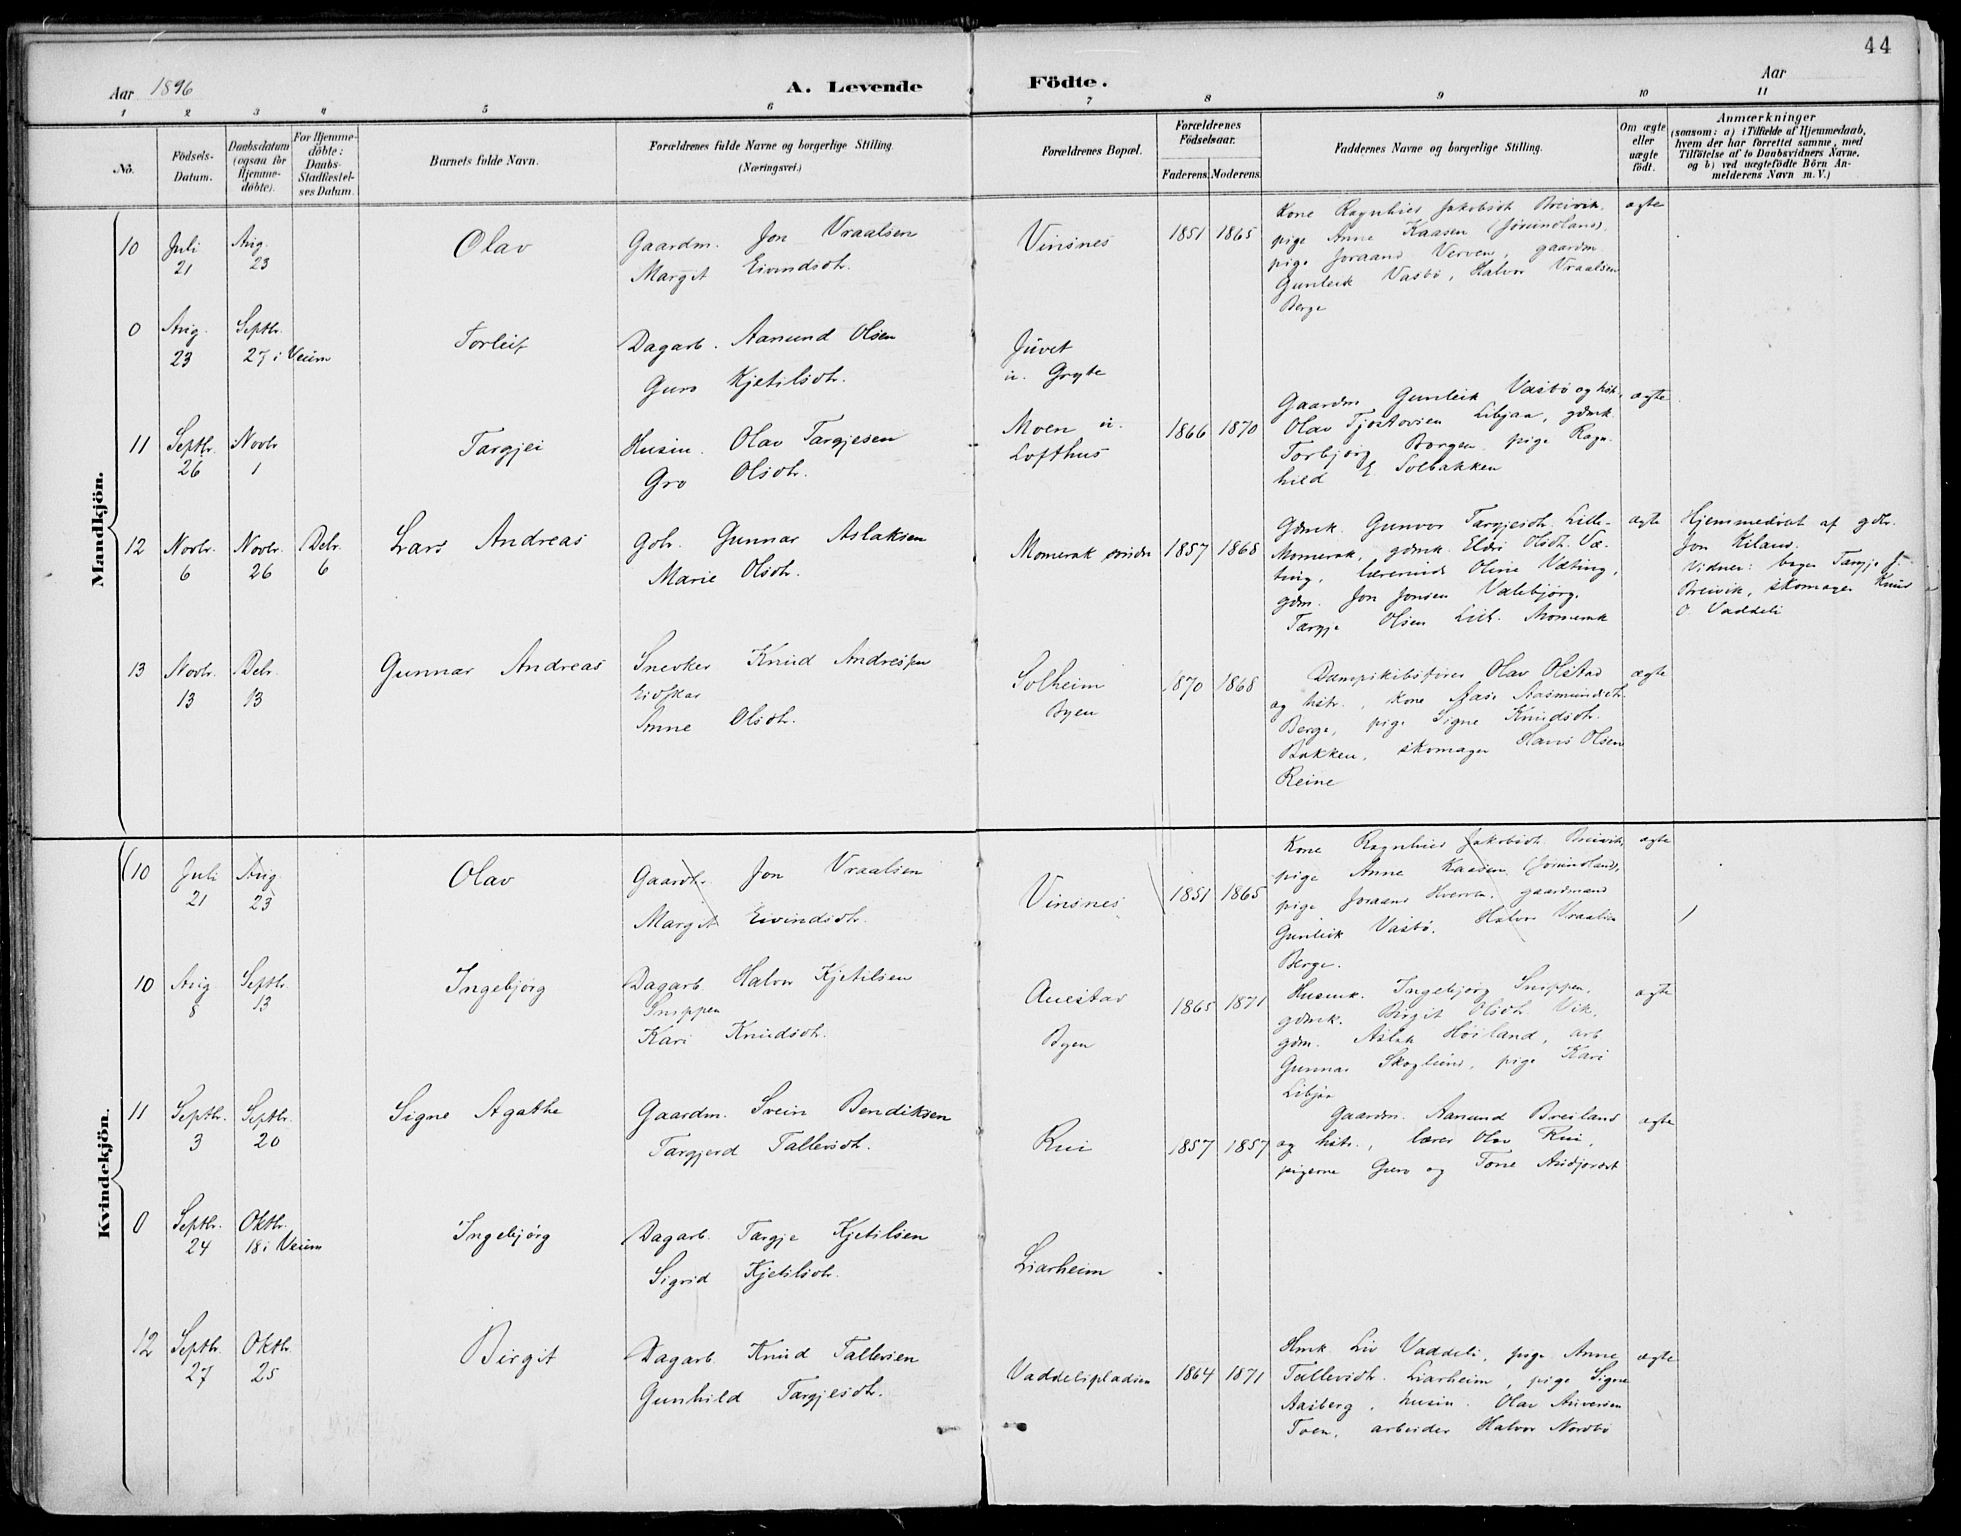 44
Aar 1896
A. Levende Födte.
Aar
1 2 3 4 5 6 7 8 9 10 11
No.
Födsels-Datum.
Daabsdatum (ogsaa for Hjemme-döbte).
For Hjemme-döbte: Daabs-Stadfæstel-ses Datum.
Barnets fulde Navn.
Forældrenes fulde Navne og borgerlige Stilling. (Næringsvei.)
Forældrenes Bopæl.
Forældrenes Födselsaar.
Faderens. Moderens.
Faddernes Navne og borgerlige Stilling.
Om ægte eller uægte født.
Anmærkninger
(saasom: a) i Tilfælde af Hjemmedaab,
hvem der har forrettet samme, med
Tilföielse af to Daabsvidners Navne,
og b) ved uægtefödte Börn An-
melderens Navn m. V.)
Mandkjön.
10 Juli 21 Aug. 23 Olav
Gaardm. Jon Vraalsen
Margit Eivindsdtr.
Vinsnes 1851 1865
Kone Ragnhild Jakobsdt. Breivik,
pige Anne Kaasen (Jørundland),
pige Joraand Verven, gaardm.
Gunleik Vasbø, Halvor Vraalsen
Berge
ægte
0 Aug. 23 Septbr. 27 i Veum Torleif
Dagarb. Aamund Olsen
Guro Kjetilsdtr.
Juvet
u. Gryte
11 Septbr. 26 Novbr. 1 Targjei
Husm. Olav Targjesen
Gro Olsdtr.
Moen u.
Lofthus
1866 1870
Gaardm. Gunleik Vasbø og hstr.,
Olav Tjostovsen Libjaa, gdmk.
Torbjørg Borgen, pige Ragn-
hild E Solbakken
ægte
12 Novbr. 6 Novbr. 26 Debr. 6 Lars Andreas
Gbr. Gunnar Aslaksen
Marie Olsdtr.
Momerak 1857 1868
Gdmk. Gunvor Targjesdtr. Lille-
Momerak, gdmk. Eldri Olsdt. Væ-
ting, lærerinde Oline Væting,
gdm. Jon Jonsen Valebjørg.
Targje Olsen Lill. Momerak
ægte
Hjemmedøbt af gdbr.
Jon Kiland.
Vidner: bager Targje J.
Breivik, skomager Knud
O. Vaddeli
13 Novbr. 13 Debr. 13 Gunnar Andreas
Snedker Knud Andresen
Eidskar
Anne Olsdtr.
Solheim
Byen
1870 1868
Dampskibsfører Olav Olstad
og hstr., kone Aase Aasmundsdt.
Berge, pige Signe Knudsdtr.
Bakken, skomager Olsen
Reine
ægte
Kvindekjön.
10 Juli 21 Aug. 23 Olav
Gaardbr. Jon Vraalsen
Margit Eivindsdtr.
Vinsnes 1851 1865
Kone Ragnhild Jakobsdt. Breivik,
pige Anne Kaasen (Jørundland),
pige Joraand Hverven, gaardmand
Gunleik Vasbø, Halvor Vraalsen
Berge.
ægte
10 Aug 8 Septbr. 13 Ingebjørg
Dagarb. Halvor Kjetilsen
Snippen
Kari Knudsdtr.
Auestad
Byen
1865 1871
Husmk. Ingebjørg Snippen,
gdmk. Birgit Olsdt. Vik,
gdm. Aslak Høiland, arb
Gunnar Skoglund, pige Kari
Libjaa
ægte
11 Septbr. 3 Septbr. 20 Signe Agathe
Gaardm. Svein Bendiksen
Targjerd Tallevsdtr.
Rui 1857 1857
Gaardm. Aamund Breiland
og hstr., lærer Olav Rui,
pigerne Guro og Tone
ægte
0 Septbr. 24 Oktbr. 18 i Veum Ingebjørg
Dagarb. Targje Kjetilsen
Sigrid Kjetilsdtr.
Liarheim
12 Septbr. 27 Oktbr. 25 Birgit
Dagarb. Knud Tallevsen
Gunhild Targjesdtr.
Vaddelipladsen 1864 1871
Hmk. Liv Vaddeli, pige Anne
Tallevsdtr. Liarheim, pige Signe
Aasberg, husm. Olav
Toen, arbeider Halvor Nordbø
ægte